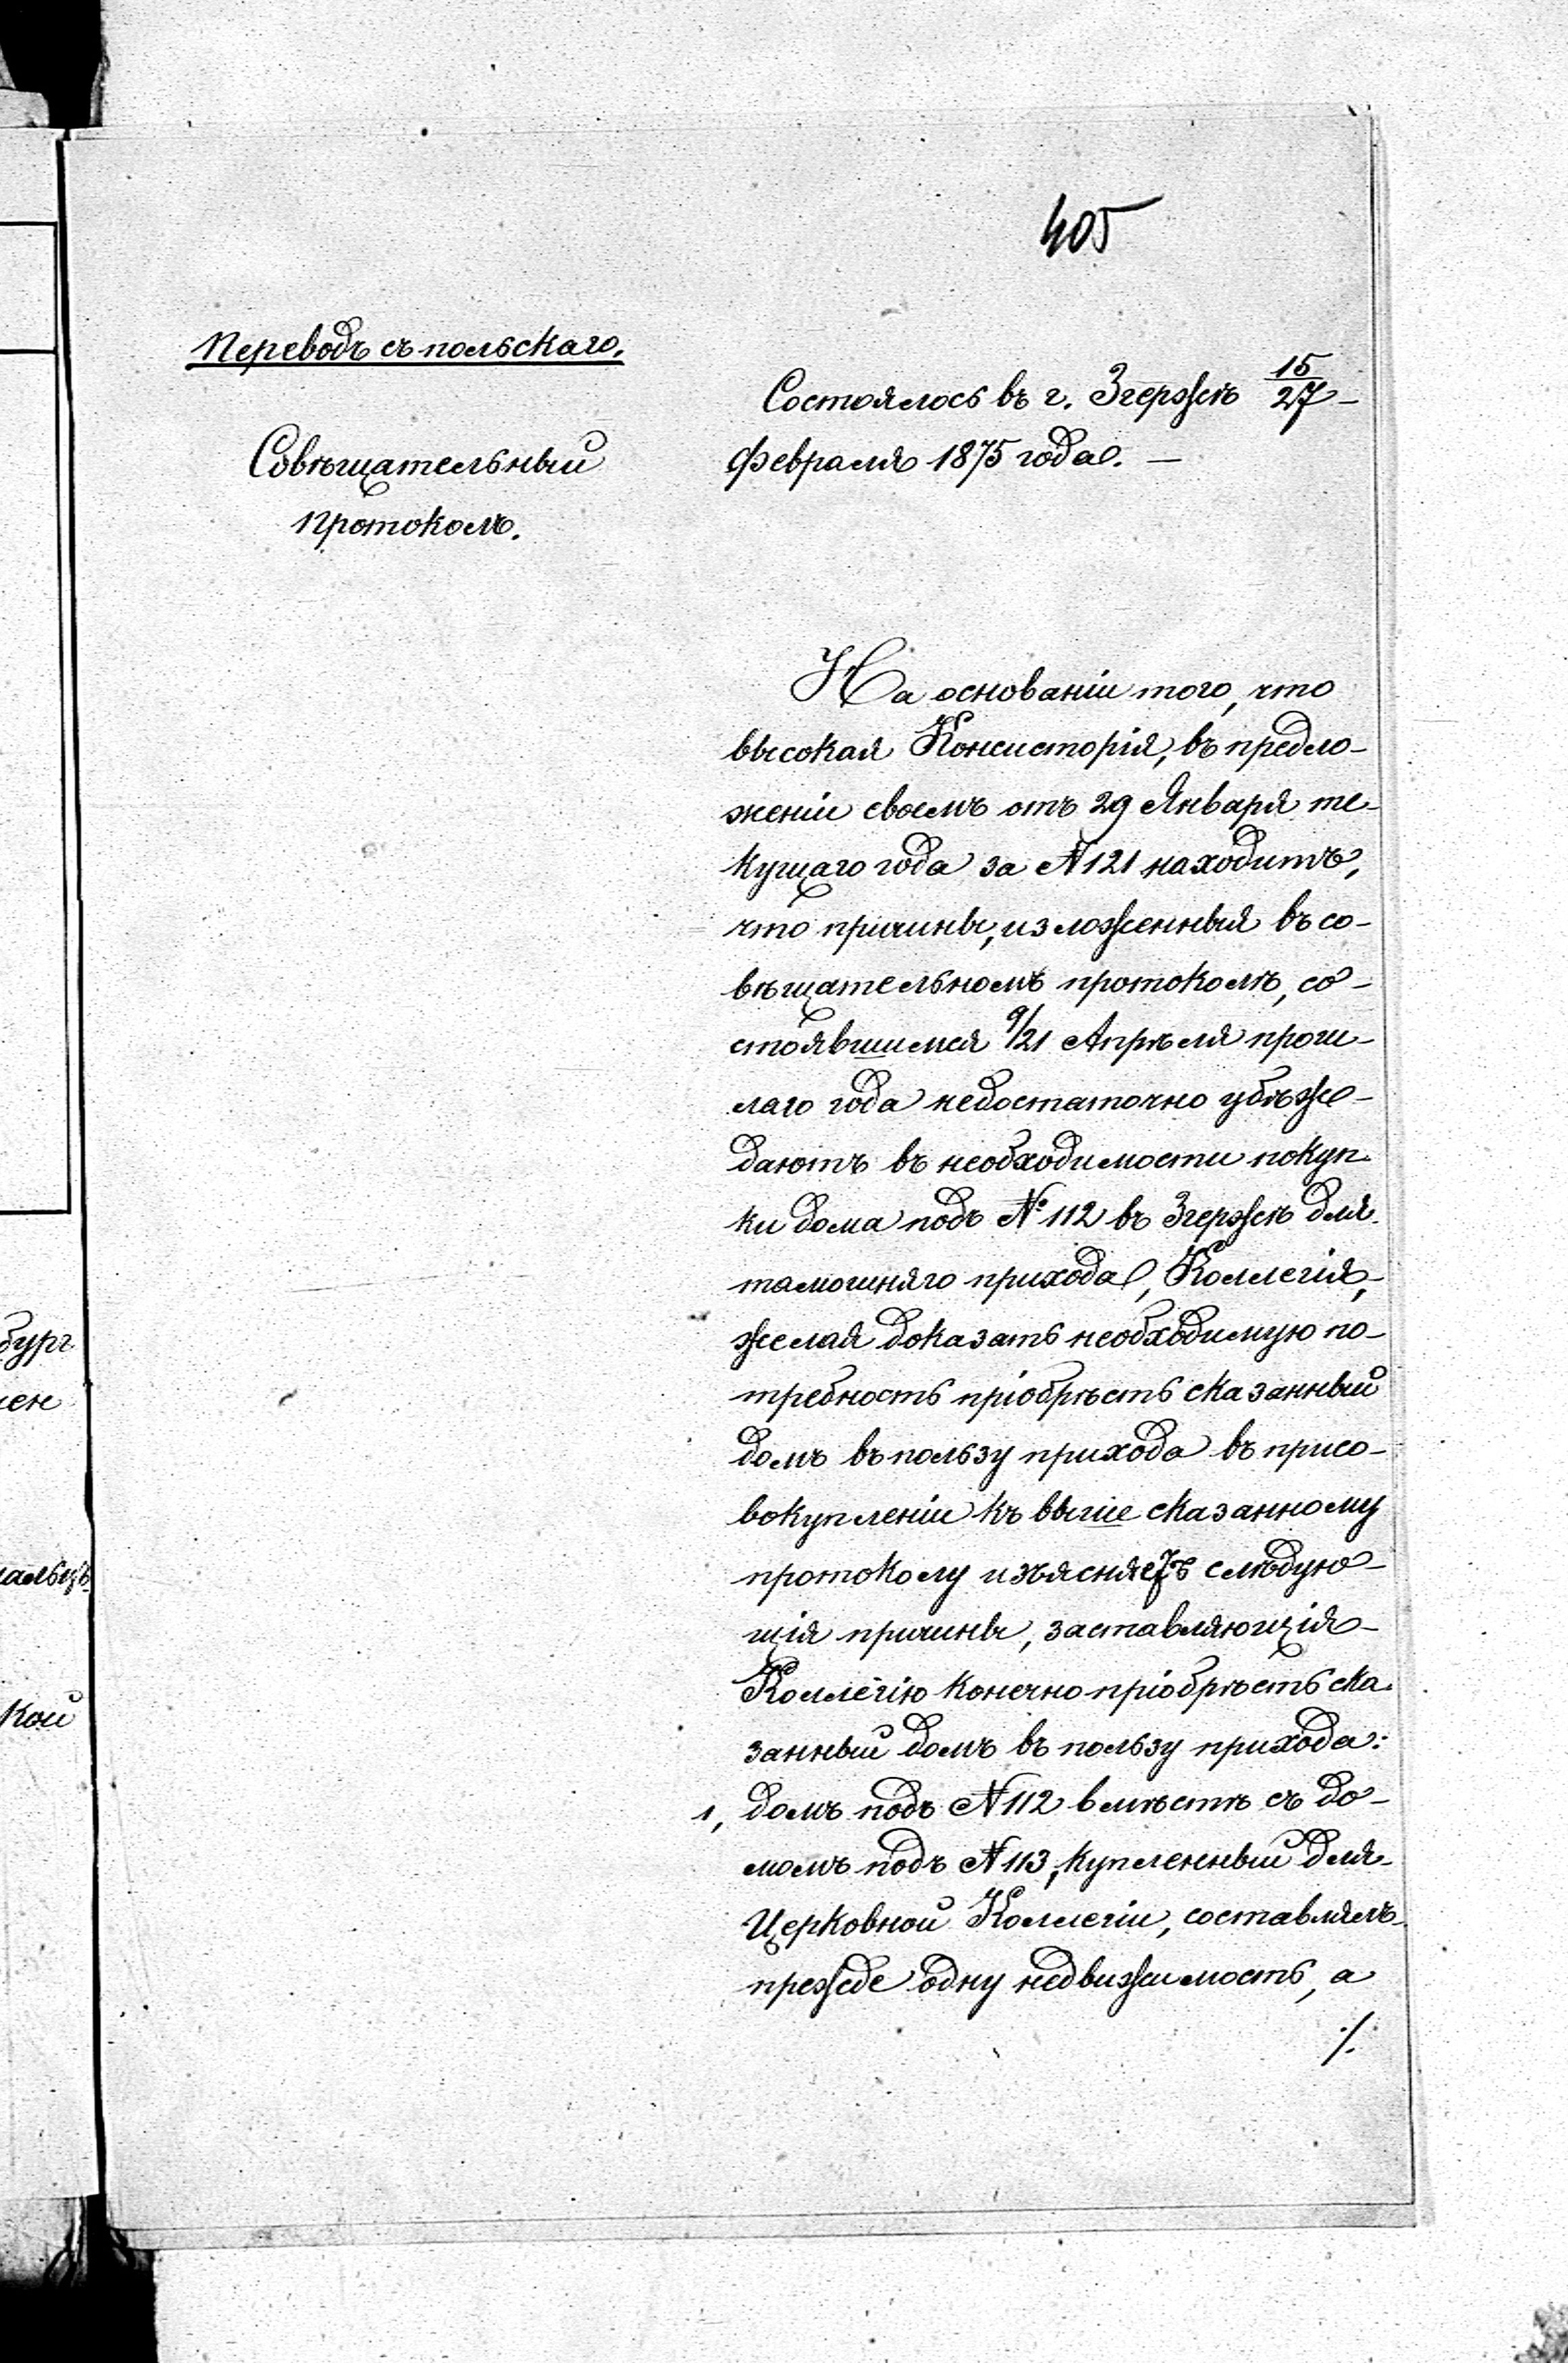 405
Переводъ съ польскаго.
Совѣщательный
Протоколъ.
Состоялось въ г. Згержѣ 15/27 –
Февраля 1875 года. –
На основаніи того, что
высокая Консисторія, въ предло-
женіи своемъ отъ 29 Января те-
кущаго года за N 121 находитъ,
что причины, изложенныя въ со-
вѣщательномъ протоколѣ, со-
стоявшимся 9/21 Апрѣля прош-
лаго года недостаточно убѣж-
даютъ въ необходимости покуп-
ки дома подъ № 112 въ Згержѣ для
тамошняго прихода, Коллегія,
желая доказать необходимую по-
требность пріобрѣсть сказанный
домъ въ пользу прихода въ присо-
вокупленіи къ выше сказанному
протоколу изъясняетъ слѣдую-
щія причины, заставляющія
Коллегію конечно пріобрѣсть ска-
занный домъ въ пользу прихода:
1, домъ подъ N 112 вмѣстѣ съ до-
момъ подъ N 113, купленный для
Церковной Коллегіи, составлялъ
прежде одну недвижимость, а
./.
бург
ен
кой